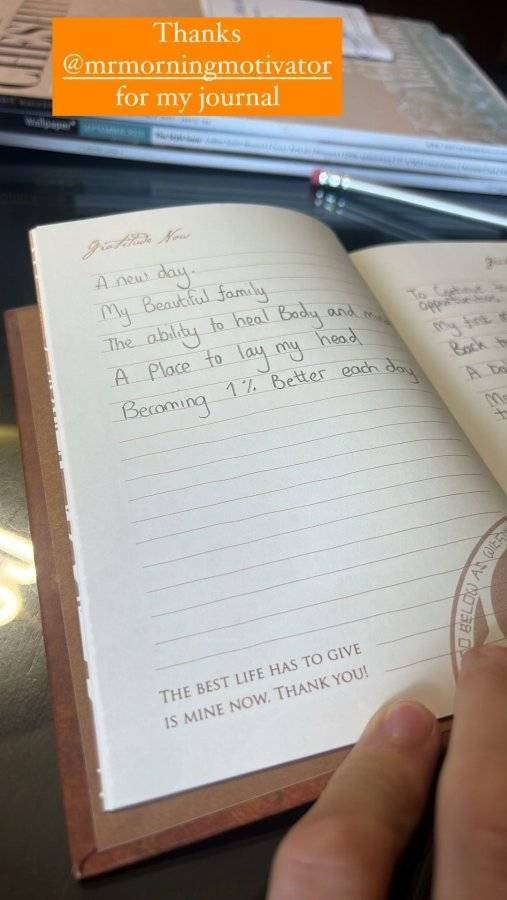 Thanks
@mrmorningmotivator
for my journal
Wallpaper*
SEPTEMBER
Gratitude Now
A new day.
My Beautiful family
The ability to heal Body and
A Place to lay my head
Becoming 1% Better each day
THE BEST LIFE HAS TO GIVE
IS MINE NOW. THANK YOU!
To Continue
opportunities
My first
Back
A
BELOW AS